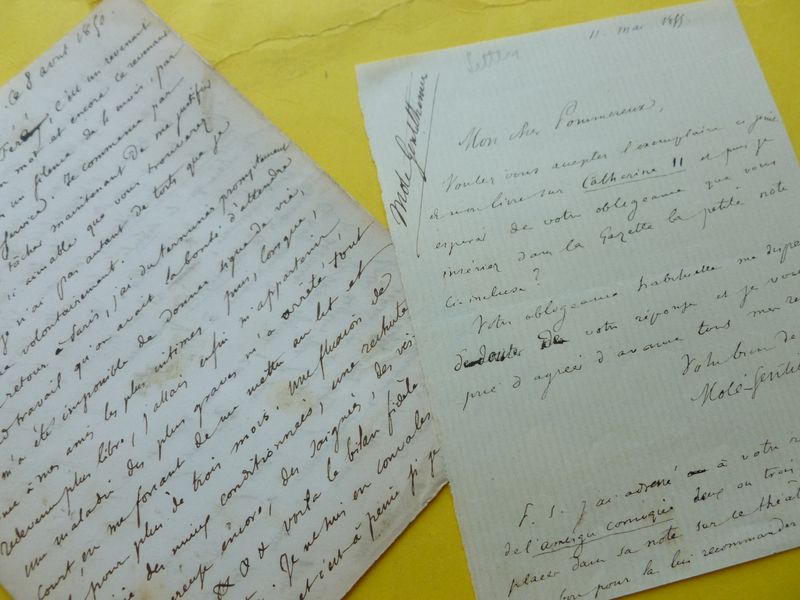 ce 8 avril 1850.
c'est un revenant
mot et encore ce revenant
un silence de 6 mois par
Janvier). Je commence par
tâcher maintenant de me justifier
aimable que vous trouverez
je n'ai pas autant de torts que je
volontairement.
retour à Paris, j'ai dû terminer promptement
travail qu'on avait la bonté d'attendre
m'a été impossible de donner signe de vie,
même à mes amis les plus intimes - puis, lorsque,
redevenu plus libre, j'allais enfin m'appartenir,
une maladie des plus graves m'a arrêté tout
court en me forçant de me mettre au lit et
pour plus de trois mois. Une fluxion de
des mieux conditionnées, une rechute
encore, des saignées, des
voilà le bilan fidèle
Je me mis en convales
et c'est à peine si je
Letters
11 Mai 1855
Molé Gentilhomme
Mon cher Pommereux,
Voulez vous accepter l'exemplaire ci joint
de mon livre sur Catherine II et puis je
espérer de votre obligeance que vous
insériez dans la Gazette la petite note
ci-incluse?
Votre obligeance habituelle me dispe
de douter de votre réponse et je vous
prie d'agréer d'avance tous mes re
Votre bien de
Molé-Gentil
P. S. J'ai adressé à votre
de l'ambigu comique deux ou trois
placer dans sa note sur le théât
bon pour la lui recommander